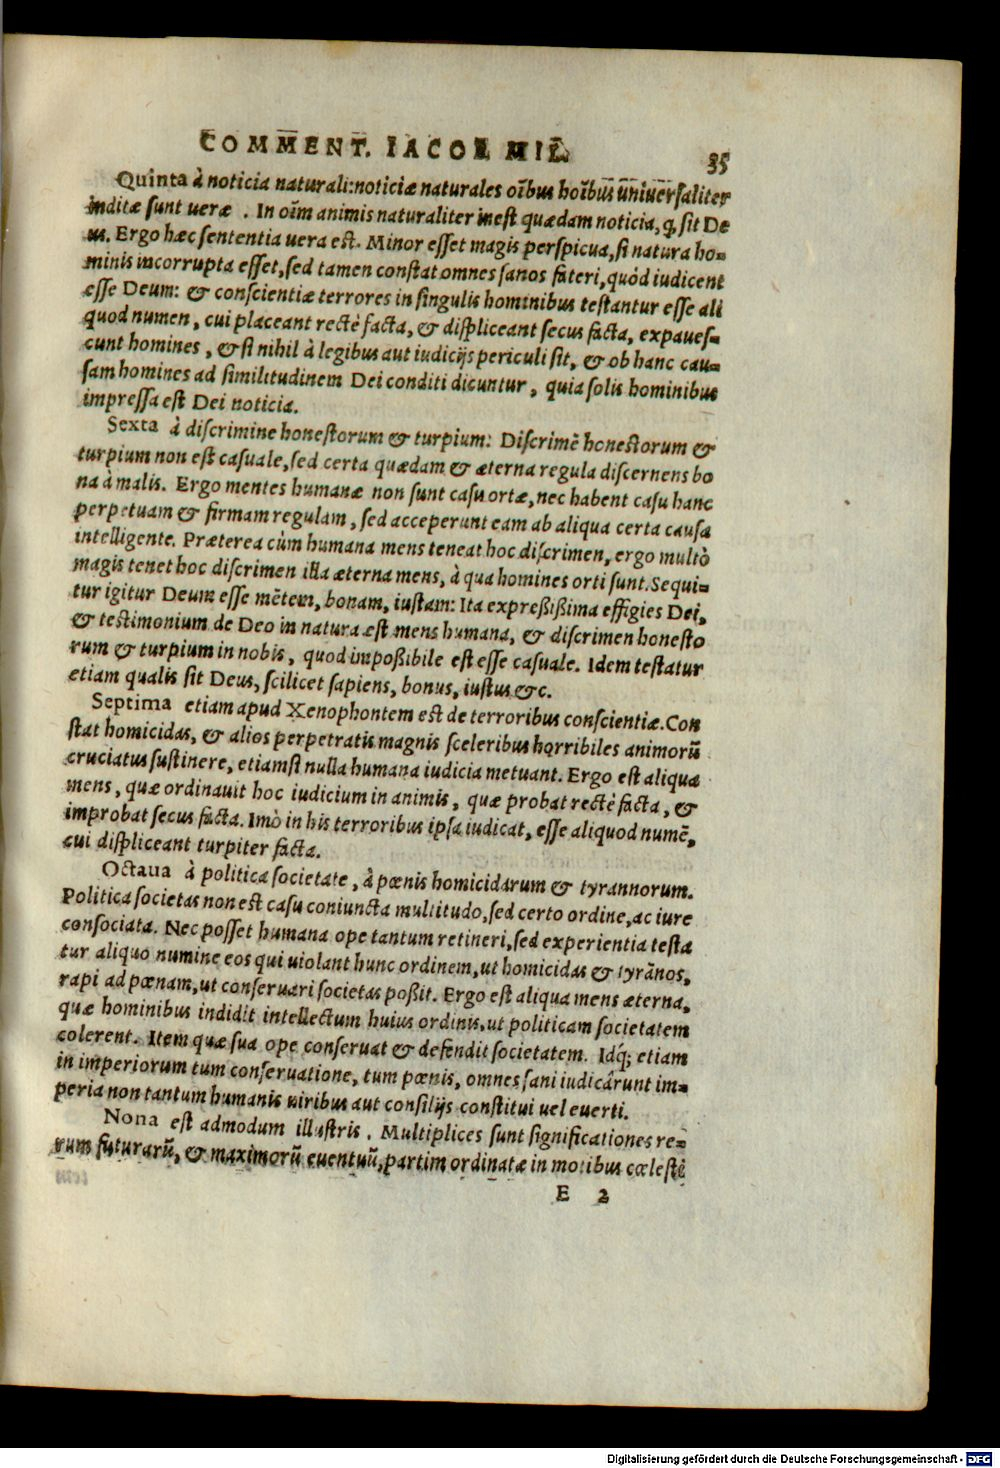 COMMENT. IACOB MIL.
35
Quinta à noticia naturali: noticiæ naturales oĩbus hoĩbus uniuersaliter
inditæ sunt ueræ. In oĩm animis naturaliter inest quædam noticia, q̃ sit De
us. Ergo hæc sententia uera est. Minor esset magis perspicua, si natura ho-
minis incorrupta esset, sed tamen constat omnes sanos fateri, quòd iudicent
esse Deum: & conscientiæ terrores in singulis hominibus testantur esse ali
quod numen, cui placeant rectè facta, & displiceant secus facta, expaues-
cunt homines, & si nihil à legibus aut iudicijs periculi sit, & ob hanc cau-
sam homines ad similitudinem Dei conditi dicuntur, quia solis hominibus
impressa est Dei noticia.
Sexta à discrimine honestorum & turpium: Discrimẽ honestorum &
turpium non est casuale, sed certa quædam & æterna regula discernens bo
na à malis. Ergo mentes humanæ non sunt casu ortæ, nec habent casu hanc
perpetuam & firmam regulam, sed acceperunt eam ab aliqua certa causa
intelligente. Præterea cùm humana mens teneat hoc discrimen, ergo multò
magis tenet hoc discrimen illa æterna mens, à qua homines orti sunt. Sequi-
tur igitur Deum esse mẽtem, bonam, iustam: Ita expreßißima effigies Dei,
& testimonium de Deo in natura est mens humana, & discrimen honesto
rum & turpium in nobis, quod impoßibile est esse casuale. Idem testatur
etiam qualis sit Deus, scilicet sapiens, bonus, iustus &c.
Septima etiam apud Xenophontem est de terroribus conscientiæ. Con
stat homicidas, & alios perpetratis magnis sceleribus horribiles animorũ
cruciatus sustinere, etiamsi nulla humana iudicia metuant. Ergo est aliqua
mens, quæ ordinauit hoc iudicium in animis, quæ probat rectè facta, &
improbat secus facta. Imò in his terroribus ipsa iudicat, esse aliquod numẽ,
cui displiceant turpiter facta.
Octaua à politica societate, à pœnis homicidarum & tyrannorum.
Politica societas non est casu coniuncta multitudo, sed certo ordine, ac iure
consociata. Nec posset humana ope tantum retineri, sed experientia testa
tur aliquo numine eos qui uiolant hunc ordinem, ut homicidas & tyrãnos,
rapi ad pœnam, ut conseruari societas poßit. Ergo est aliqua mens æterna,
quæ hominibus indidit intellectum huius ordinis, ut politicam societatem
colerent. Item quæ sua ope conseruat & defendit societatem. Idq́; etiam
in imperiorum tum conseruatione, tum pœnis, omnes sani iudicârunt im-
peria non tantum humanis uiribus aut consilijs constitui uel euerti.
Nona est admodum illustris. Multiplices sunt significationes re-
rum futurarũ, & maximorũ euentuũ, partim ordinatæ in motibus cœlestẽ
E 2
Digitalisierung gefördert durch die Deutsche Forschungsgemeinschaft - DFG